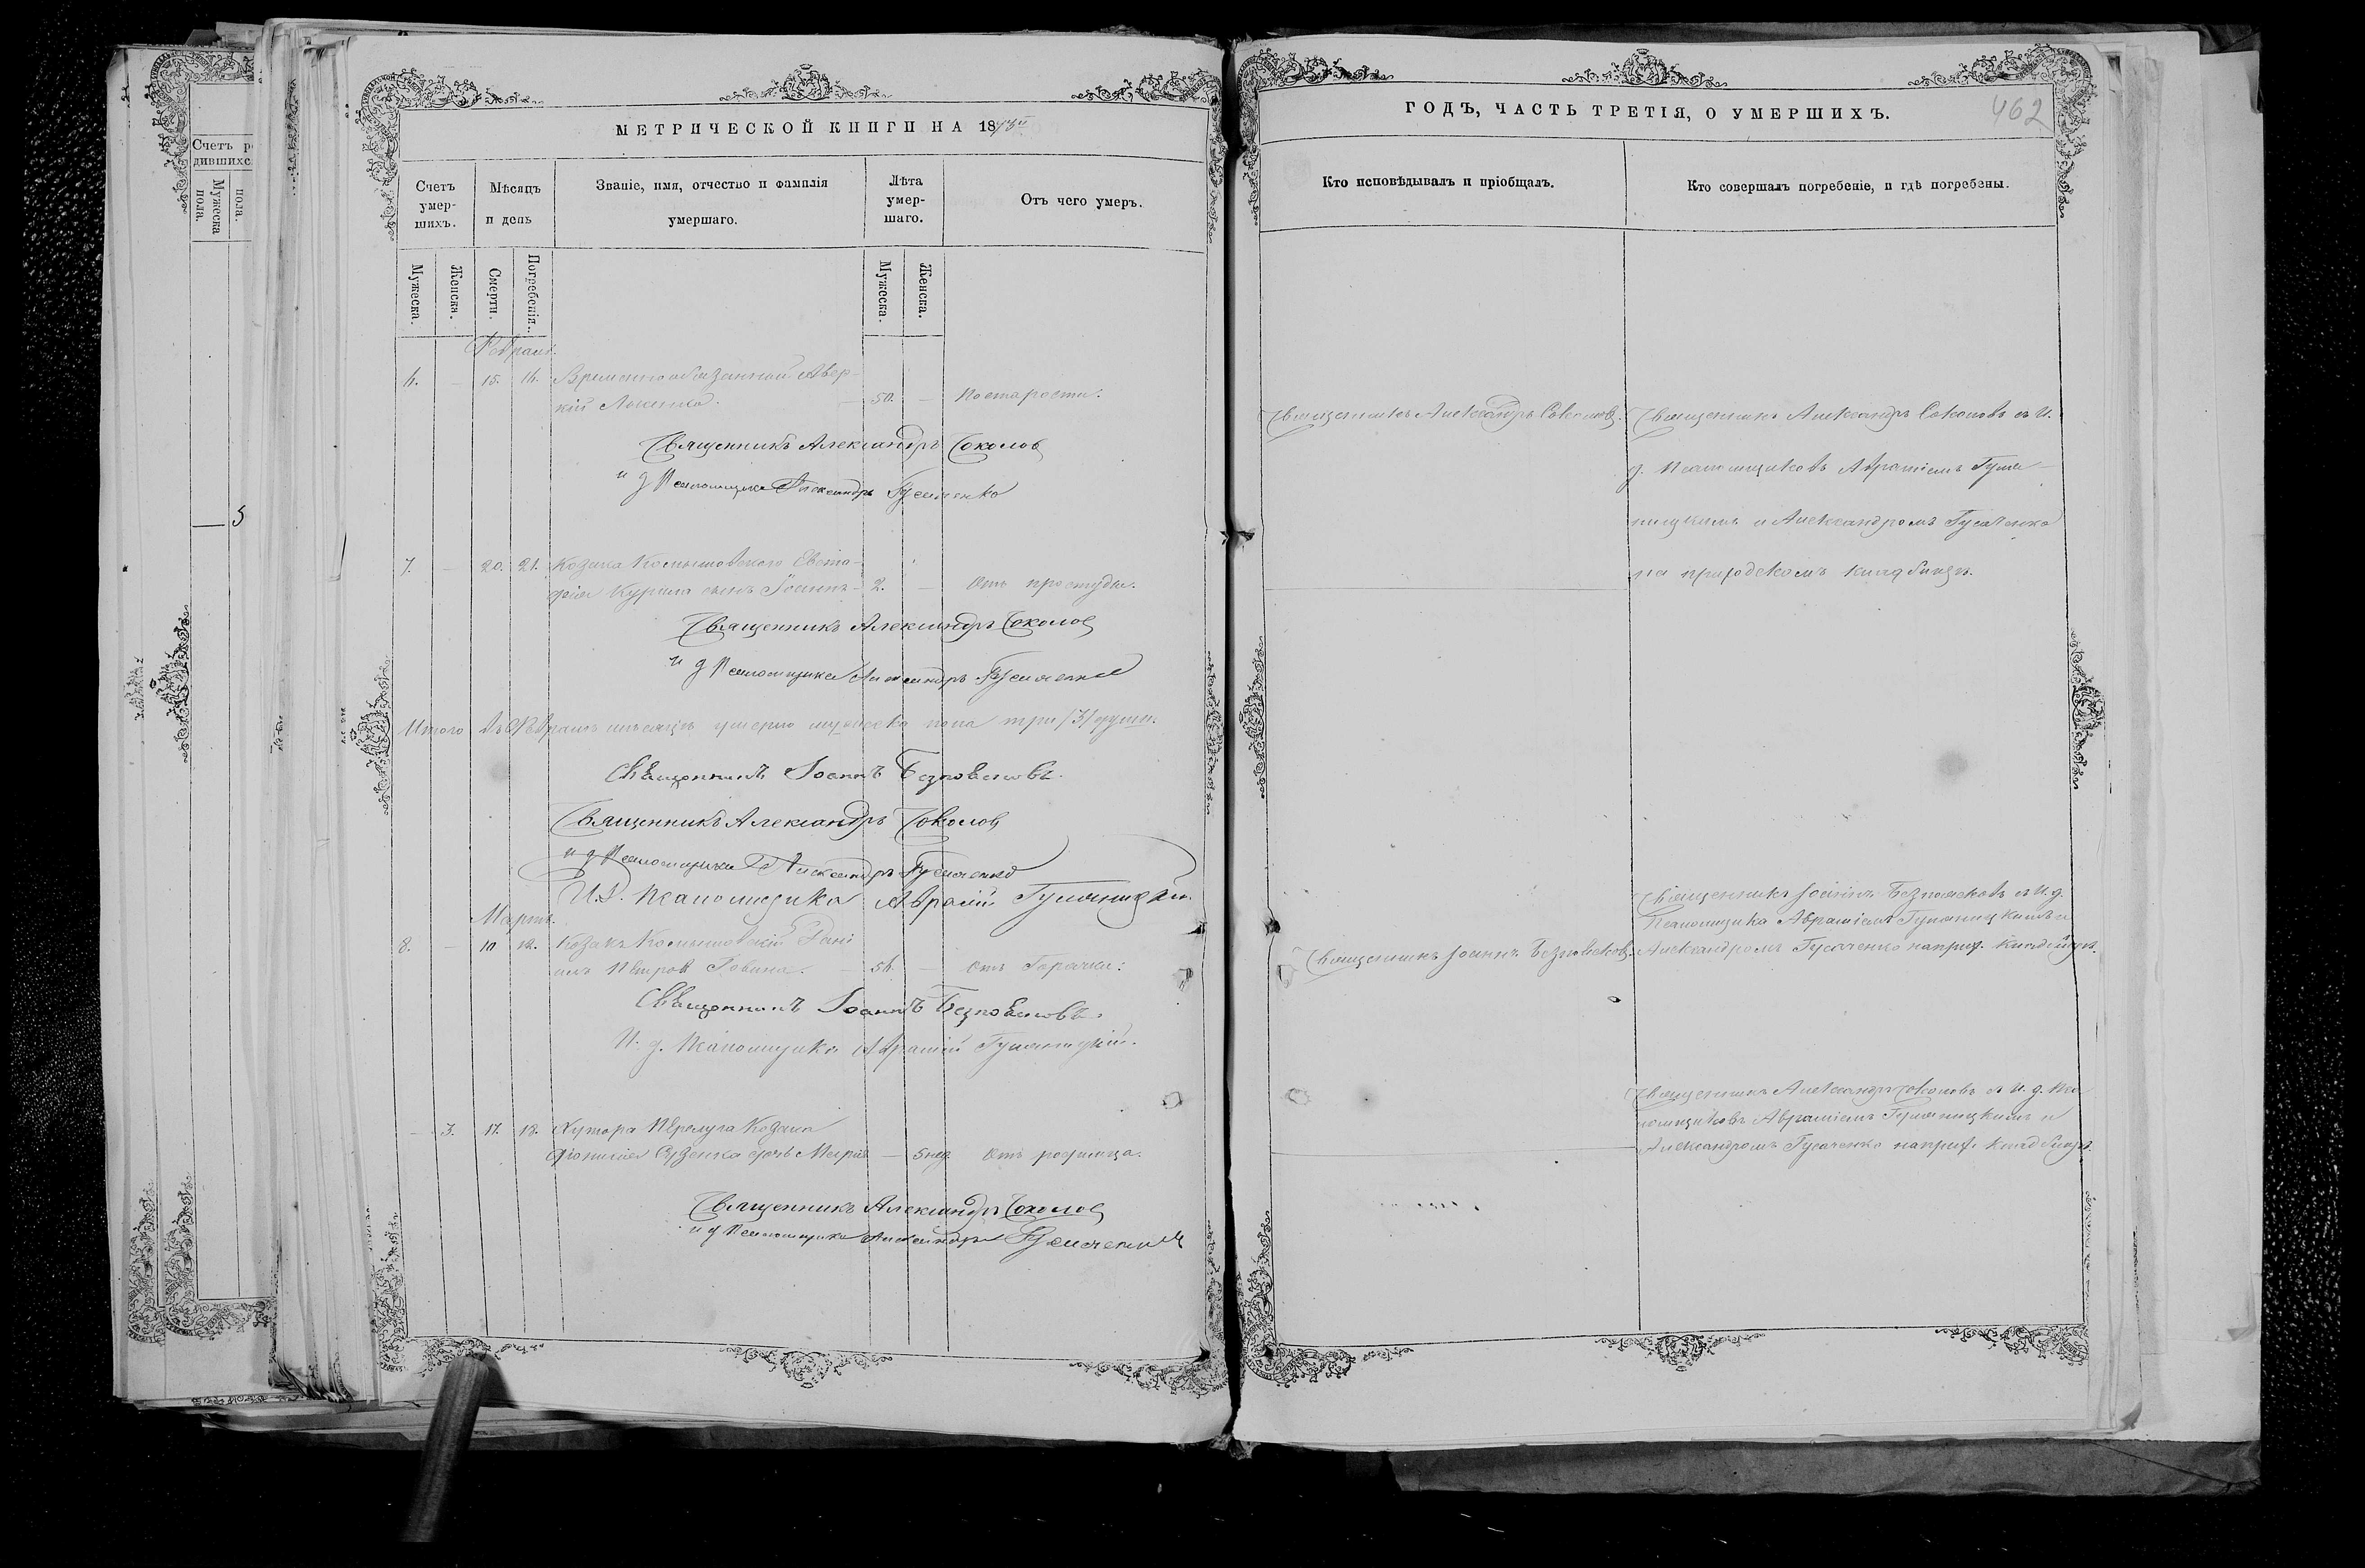 Счетъ р
дившихс
Мужеска пола.
пола.
5
МЕТРИЧЕСКОЙ КНИГИ НА 1873й
Счетъ умер-шихъ.
Мѣсяцъ и день
Званіе, имя, отчество и фамилія умершаго.
Лѣта умер-шаго.
Отъ чего умеръ.
Мужеска.
Женска.
Смерти.
Погребенія.
Мужеска.
Женска.
Февраль.
6. — 15. 16. Временно обязанный Авер-
кій — 50. — По старости.
Священникъ Александръ Соколов
и д Псаломщика Александръ Гусаченко
7. — 20. 21. Козака Комышовского Евста-
фія Курила сынъ Іоаннъ — 2. — Отъ простуды.
Священникъ Александръ Соколов
и д Псаломщика Александръ Гусаченко
Итого въ Февралѣ мѣсяцѣ умерло мужеска пола три /3/ души.
Священникъ Іоаннъ
Священникъ Александръ Соколов
и д Псаломщика Александръ Гусаченко
И. д. Псаломщика Аврамій
Мартъ.
8. — 10 12. Козакъ Комышовскій Дані
илъ Петров — 56. — Отъ Горячки.
Священникъ Іоаннъ
И. д. Псаломщика Аврамій
— 3. 17. 18. Хутора Козака
дочь Марія — 5 нед. Отъ родимца.
Священникъ Александръ Соколов
и д Псаломщика Александръ Гусаченко
ГОДЪ, ЧАСТЬ ТРЕТІЯ, О УМЕРШИХЪ.
462
Кто исповѣдывалъ и пріобщалъ.
Кто совершалъ погребеніе, и гдѣ погребены.
Священникъ Александръ Соколов.
Священникъ Александръ Соколовъ съ И.
д. Псаломщиковъ Авраміемъ
и Александромъ Гусаченко
на приходскомъ кладбищѣ.
Священникъ Іоаннъ
Священникъ Іоаннъ съ И. д.
Псаломщика Авраміемъ и
Александромъ Гусаченко на прих. кладбищѣ.
Священникъ Александръ Соколовъ съ И. д. Пса
ломщиковъ Авраміемъ и
Александромъ Гусаченко на прих. кладбищѣ.